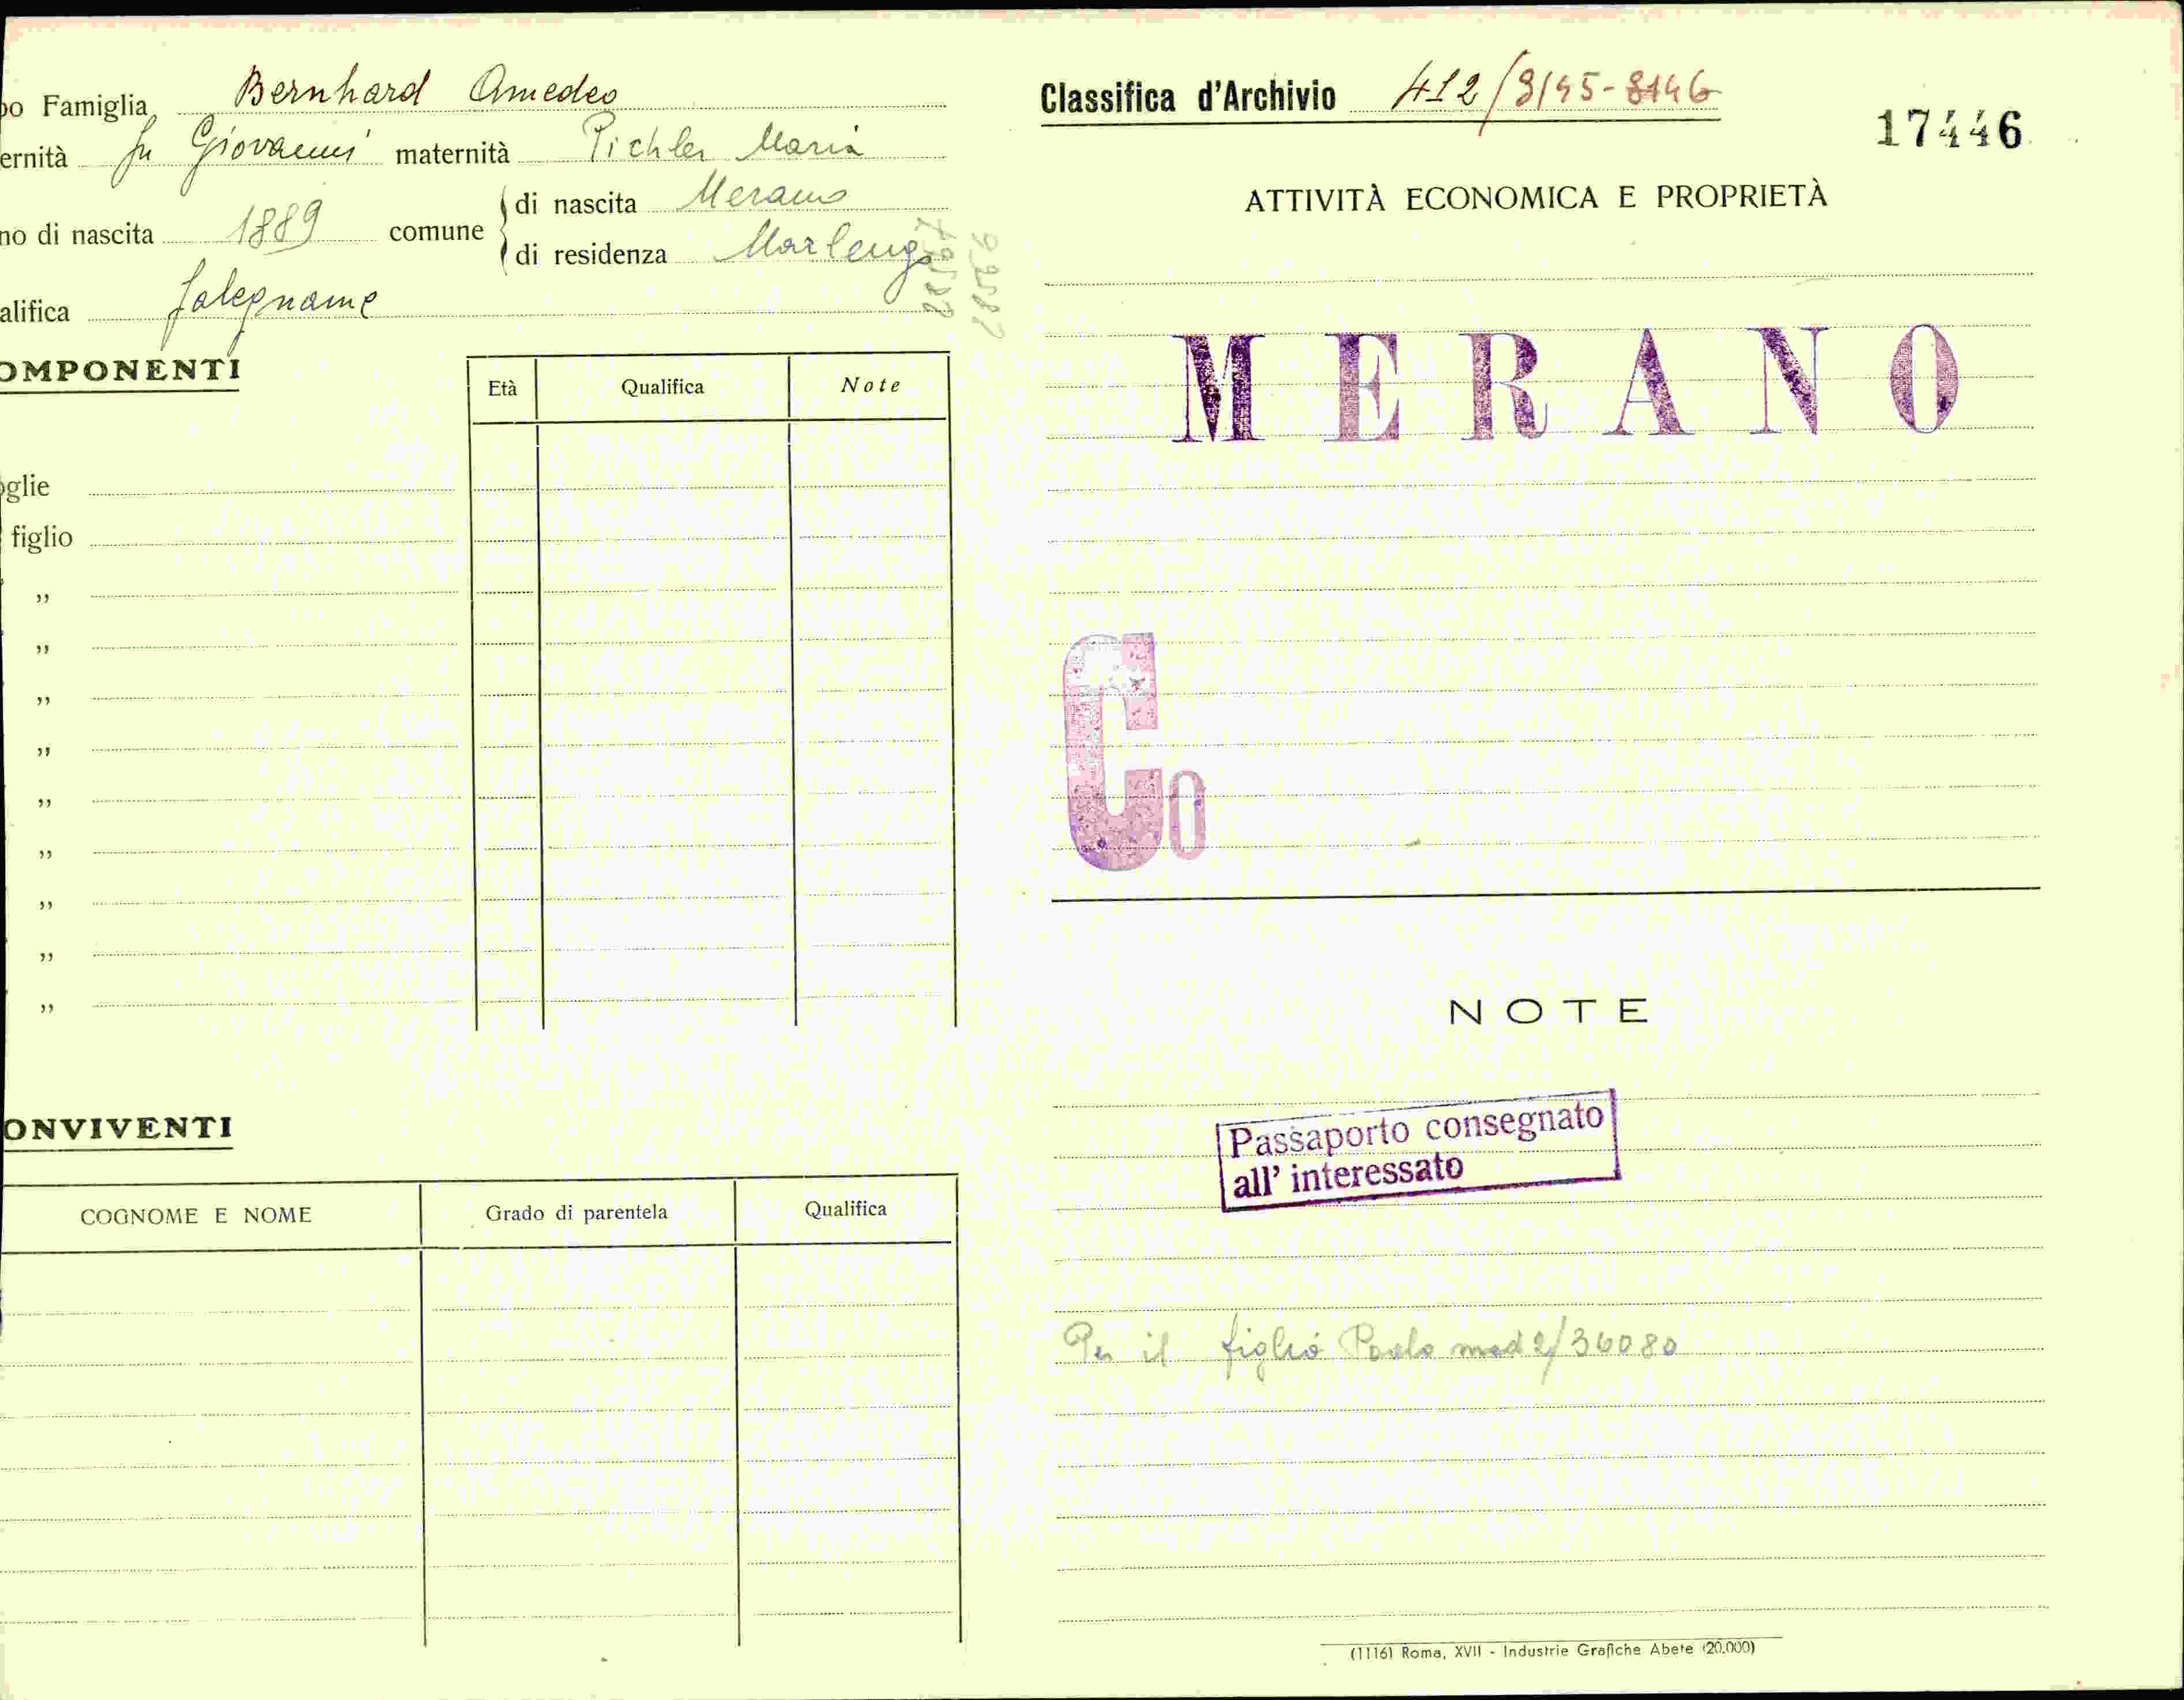 po Famiglia Bernhard Amedeo
ernità fu Giovanni maternità Pichler Maria
no di nascita 1889 comune di nascita Merano
di residenza Marlengo
alifica falegname
OMPONENTI
Età Qualifica Note
oglie
figlio
"
"
"
"
"
"
"
"
"
ONVIVENTI
COGNOME E NOME Grado di parentela Qualifica
Classifica d'Archivio 412/3145-3146
17446
ATTIVITÀ ECONOMICA E PROPRIETÀ
MERANO
Co
NOTE
Passaporto consegnato
all' interessato
Per il figlio Paolo mod 2/36080
(1116) Roma, XVII - Industrie Grafiche Abete (20.000)